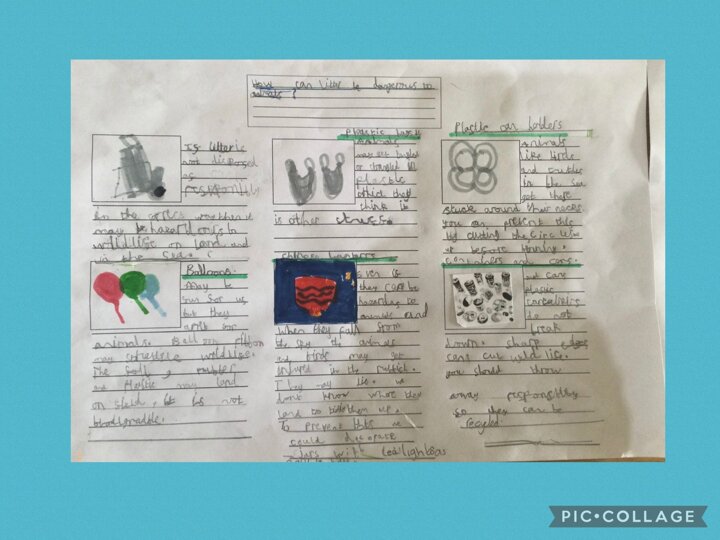 How can litter be dangerous to
animals?
If litter is
not disposed
of
responsibly
in the correct way then it
may be hazardous to
wildlife on land and
in the sea.
Balloons.
may be
fun for us
but they
animals. Balloon ribbon
may wildlife.
The foil, rubber
and plastic may land
on is not
biodegradable.
Plastic bags
Animals
may get
or
plastic
which they
think is
is other
Chinese lanterns
even if
they can be
hazardous to
animals and
When they fall from
the sky the animals
and birds may get
injured in the
They may we
don't know where they
land to them up.
To prevent this we
could decorate
jars with tealights
Plastic can holders
Animals
like birds
and turtles
in the sea
get these
stuck around their necks
you can prevent this
by cutting the circles
before
containers and cans.
plastic
containers
do not
break
down. sharp edges
cans cut wild life.
you should throw
away responsibly
so they can be
recycled
PIC•COLLAGE